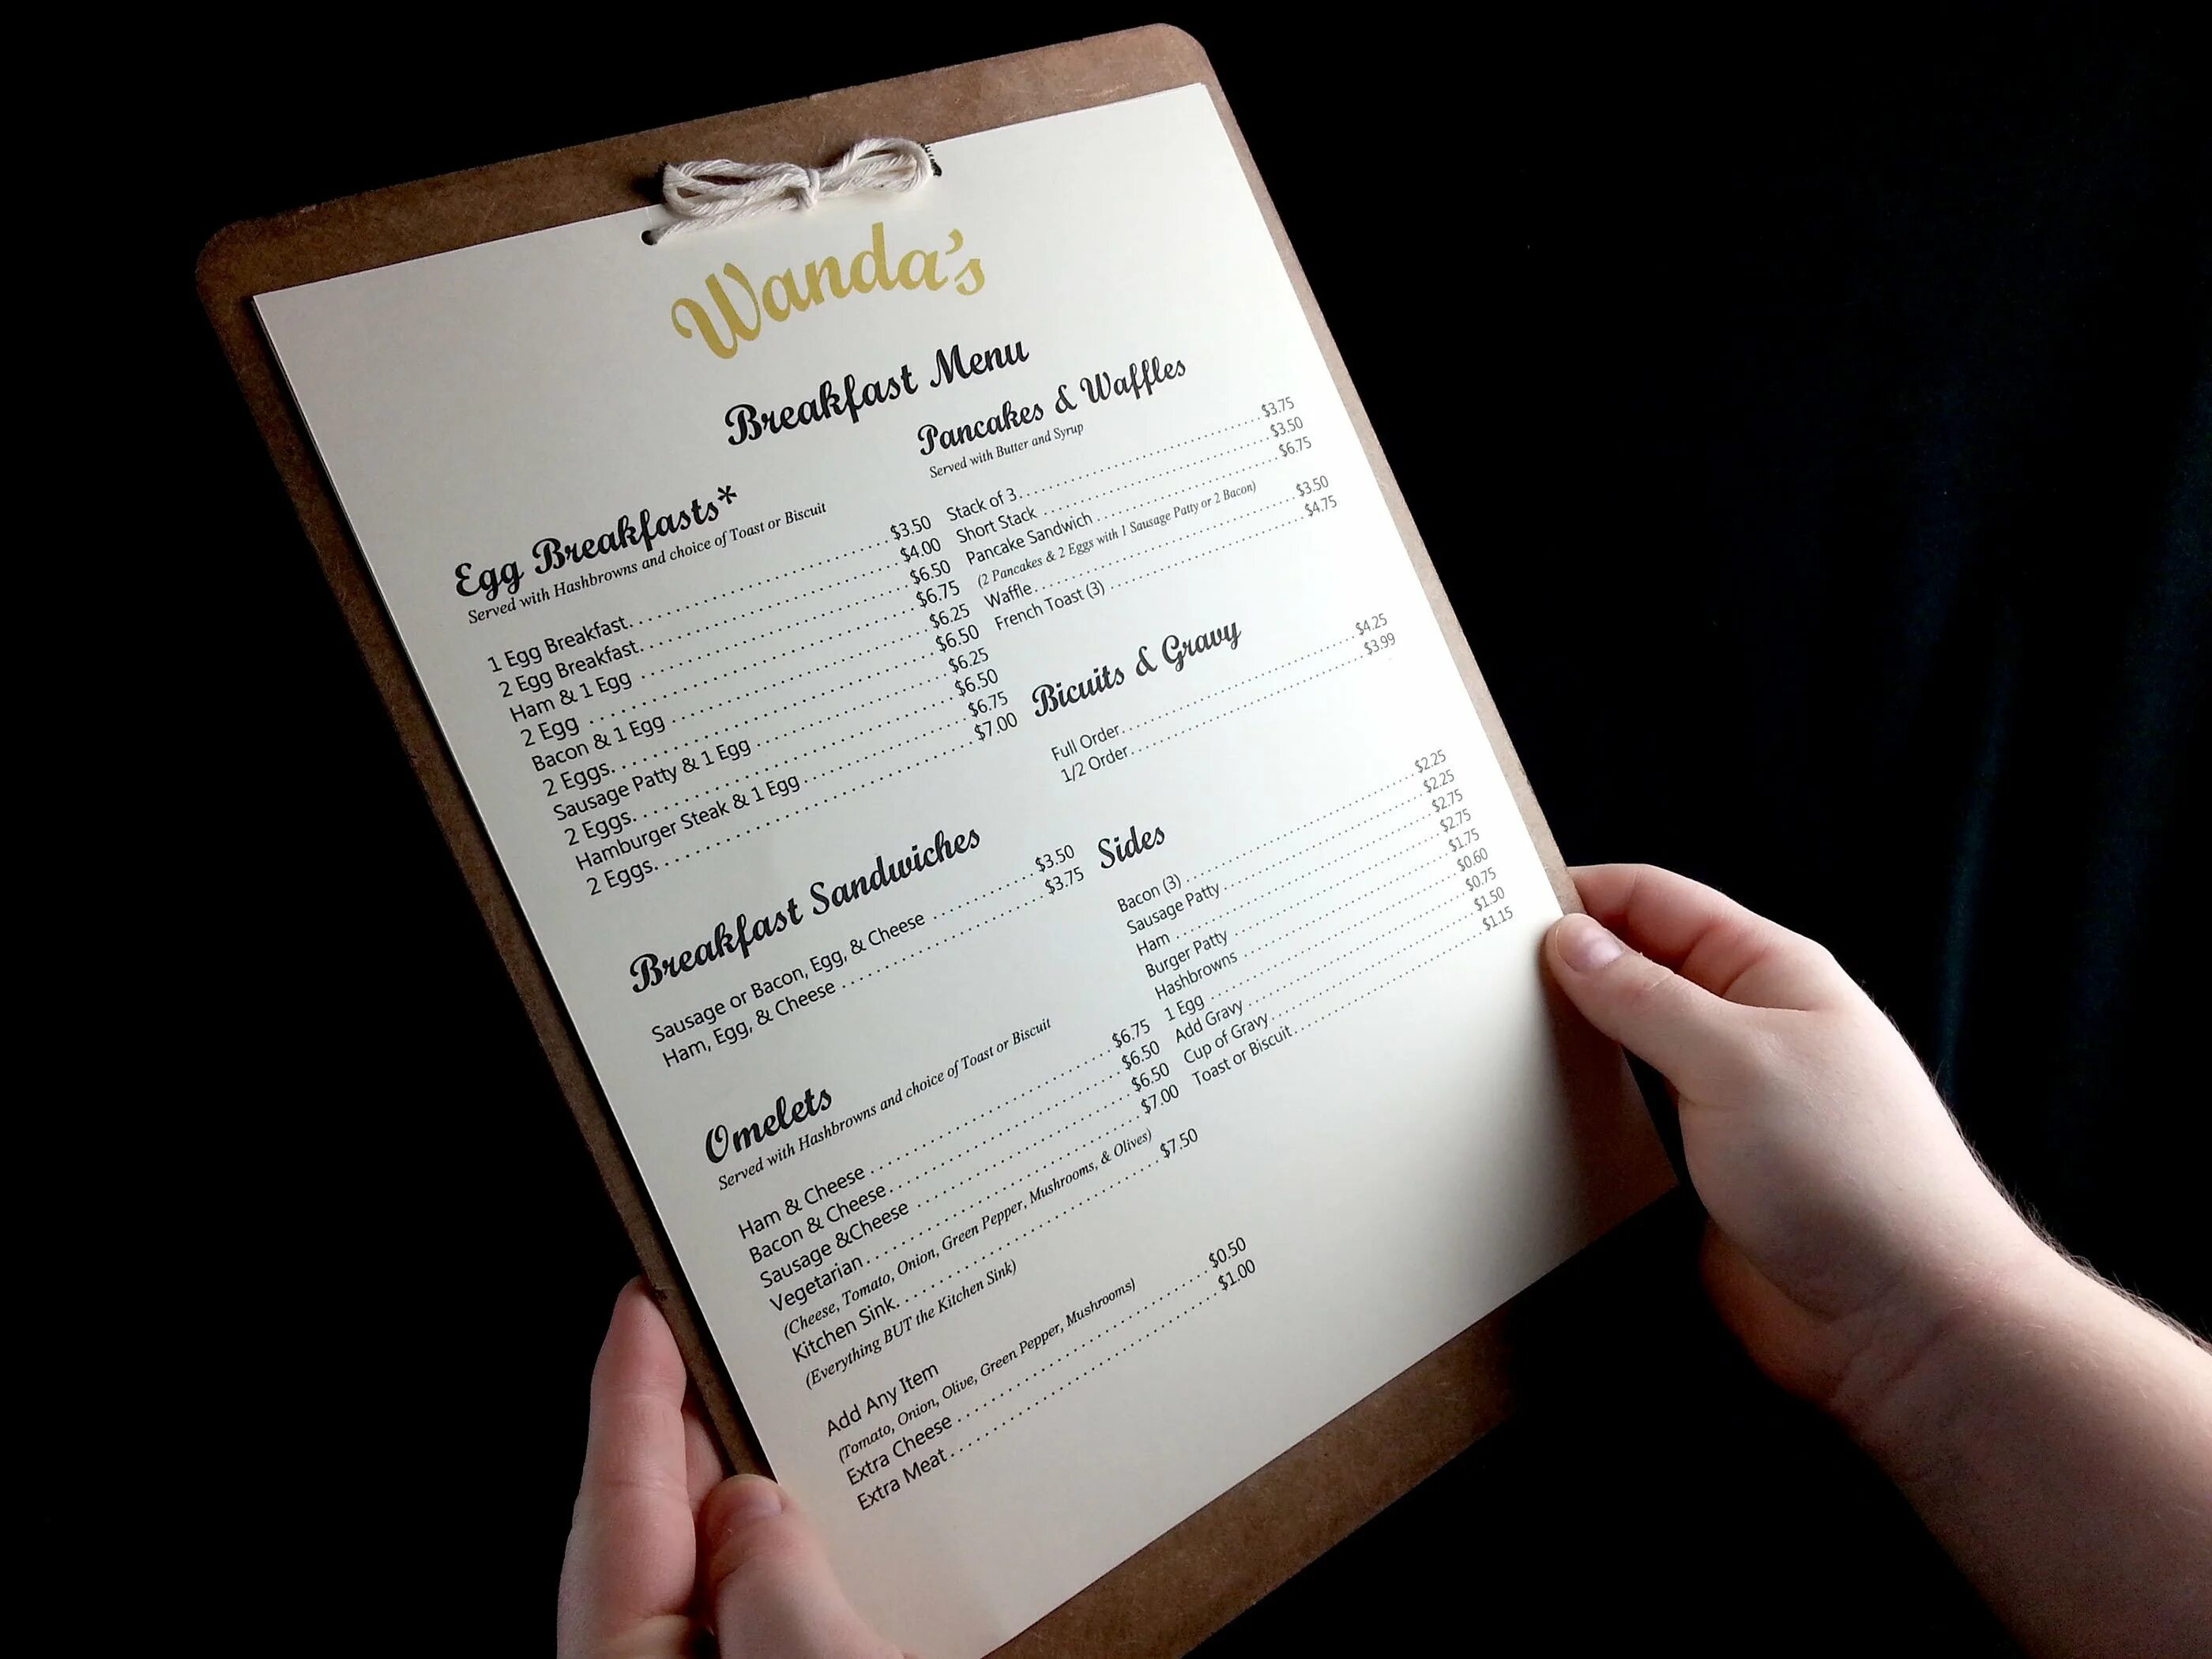 Wanda's
Breakfast Menu
Egg Breakfasts*
Served with Hashbrowns and choice of Toast or Biscuit
1 Egg Breakfast. $3.50
2 Egg Breakfast. $4.00
Ham & 1 Egg $6.50
2 Egg $6.75
Bacon & 1 Egg $6.25
2 Eggs. $6.50
Sausage Patty & 1 Egg $6.25
2 Eggs. $6.50
Hamburger Steak & 1 Egg $6.75
2 Eggs. $7.00
Breakfast Sandwiches
Sausage or Bacon, Egg, & Cheese $3.50
Ham, Egg, & Cheese $3.75
Omelets
Served with Hashbrowns and choice of Toast or Biscuit
Ham & Cheese $6.75
Bacon & Cheese $6.50
Sausage &Cheese $6.50
Vegetarian $7.00
(Cheese, Tomato, Onion, Green Pepper, Mushrooms, & Olives)
Kitchen Sink. $7.50
(Everything BUT the Kitchen Sink)
Add Any Item
(Tomato, Onion, Olive, Green Pepper, Mushrooms)
Extra Cheese $0.50
Extra Meat $1.00
Pancakes & Waffles
Served with Butter and Syrup
Stack of 3 $3.75
Short Stack $3.50
Pancake Sandwich $6.75
(2 Pancakes & 2 Eggs with 1 Sausage Patty or 2 Bacon)
Waffle $3.50
French Toast (3) $4.75
Bicuits & Gravy
Full Order $4.25
1/2 Order $3.99
Sides
Bacon (3) $2.25
Sausage Patty $2.25
Ham $2.75
Burger Patty $2.75
Hashbrowns $1.75
1 Egg $0.60
Add Gravy $0.75
Cup of Gravy $1.50
Toast or Biscuit $1.15